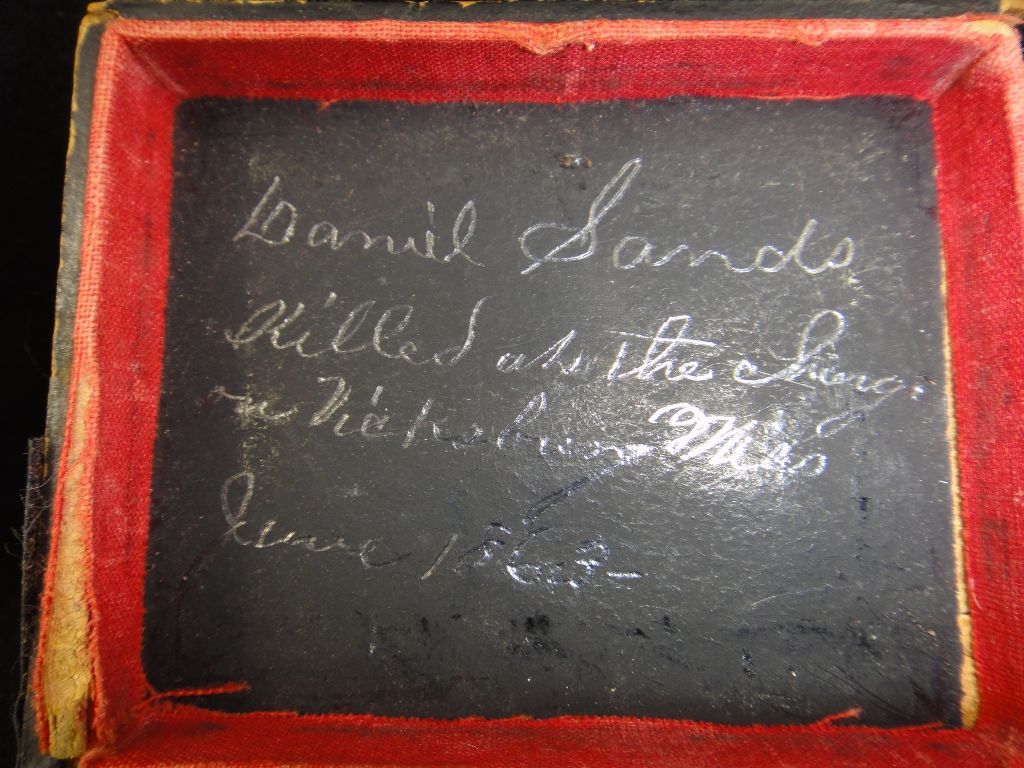 Daniel Sands
Killed at the charge
on Vicksburg Miss
June 1863-